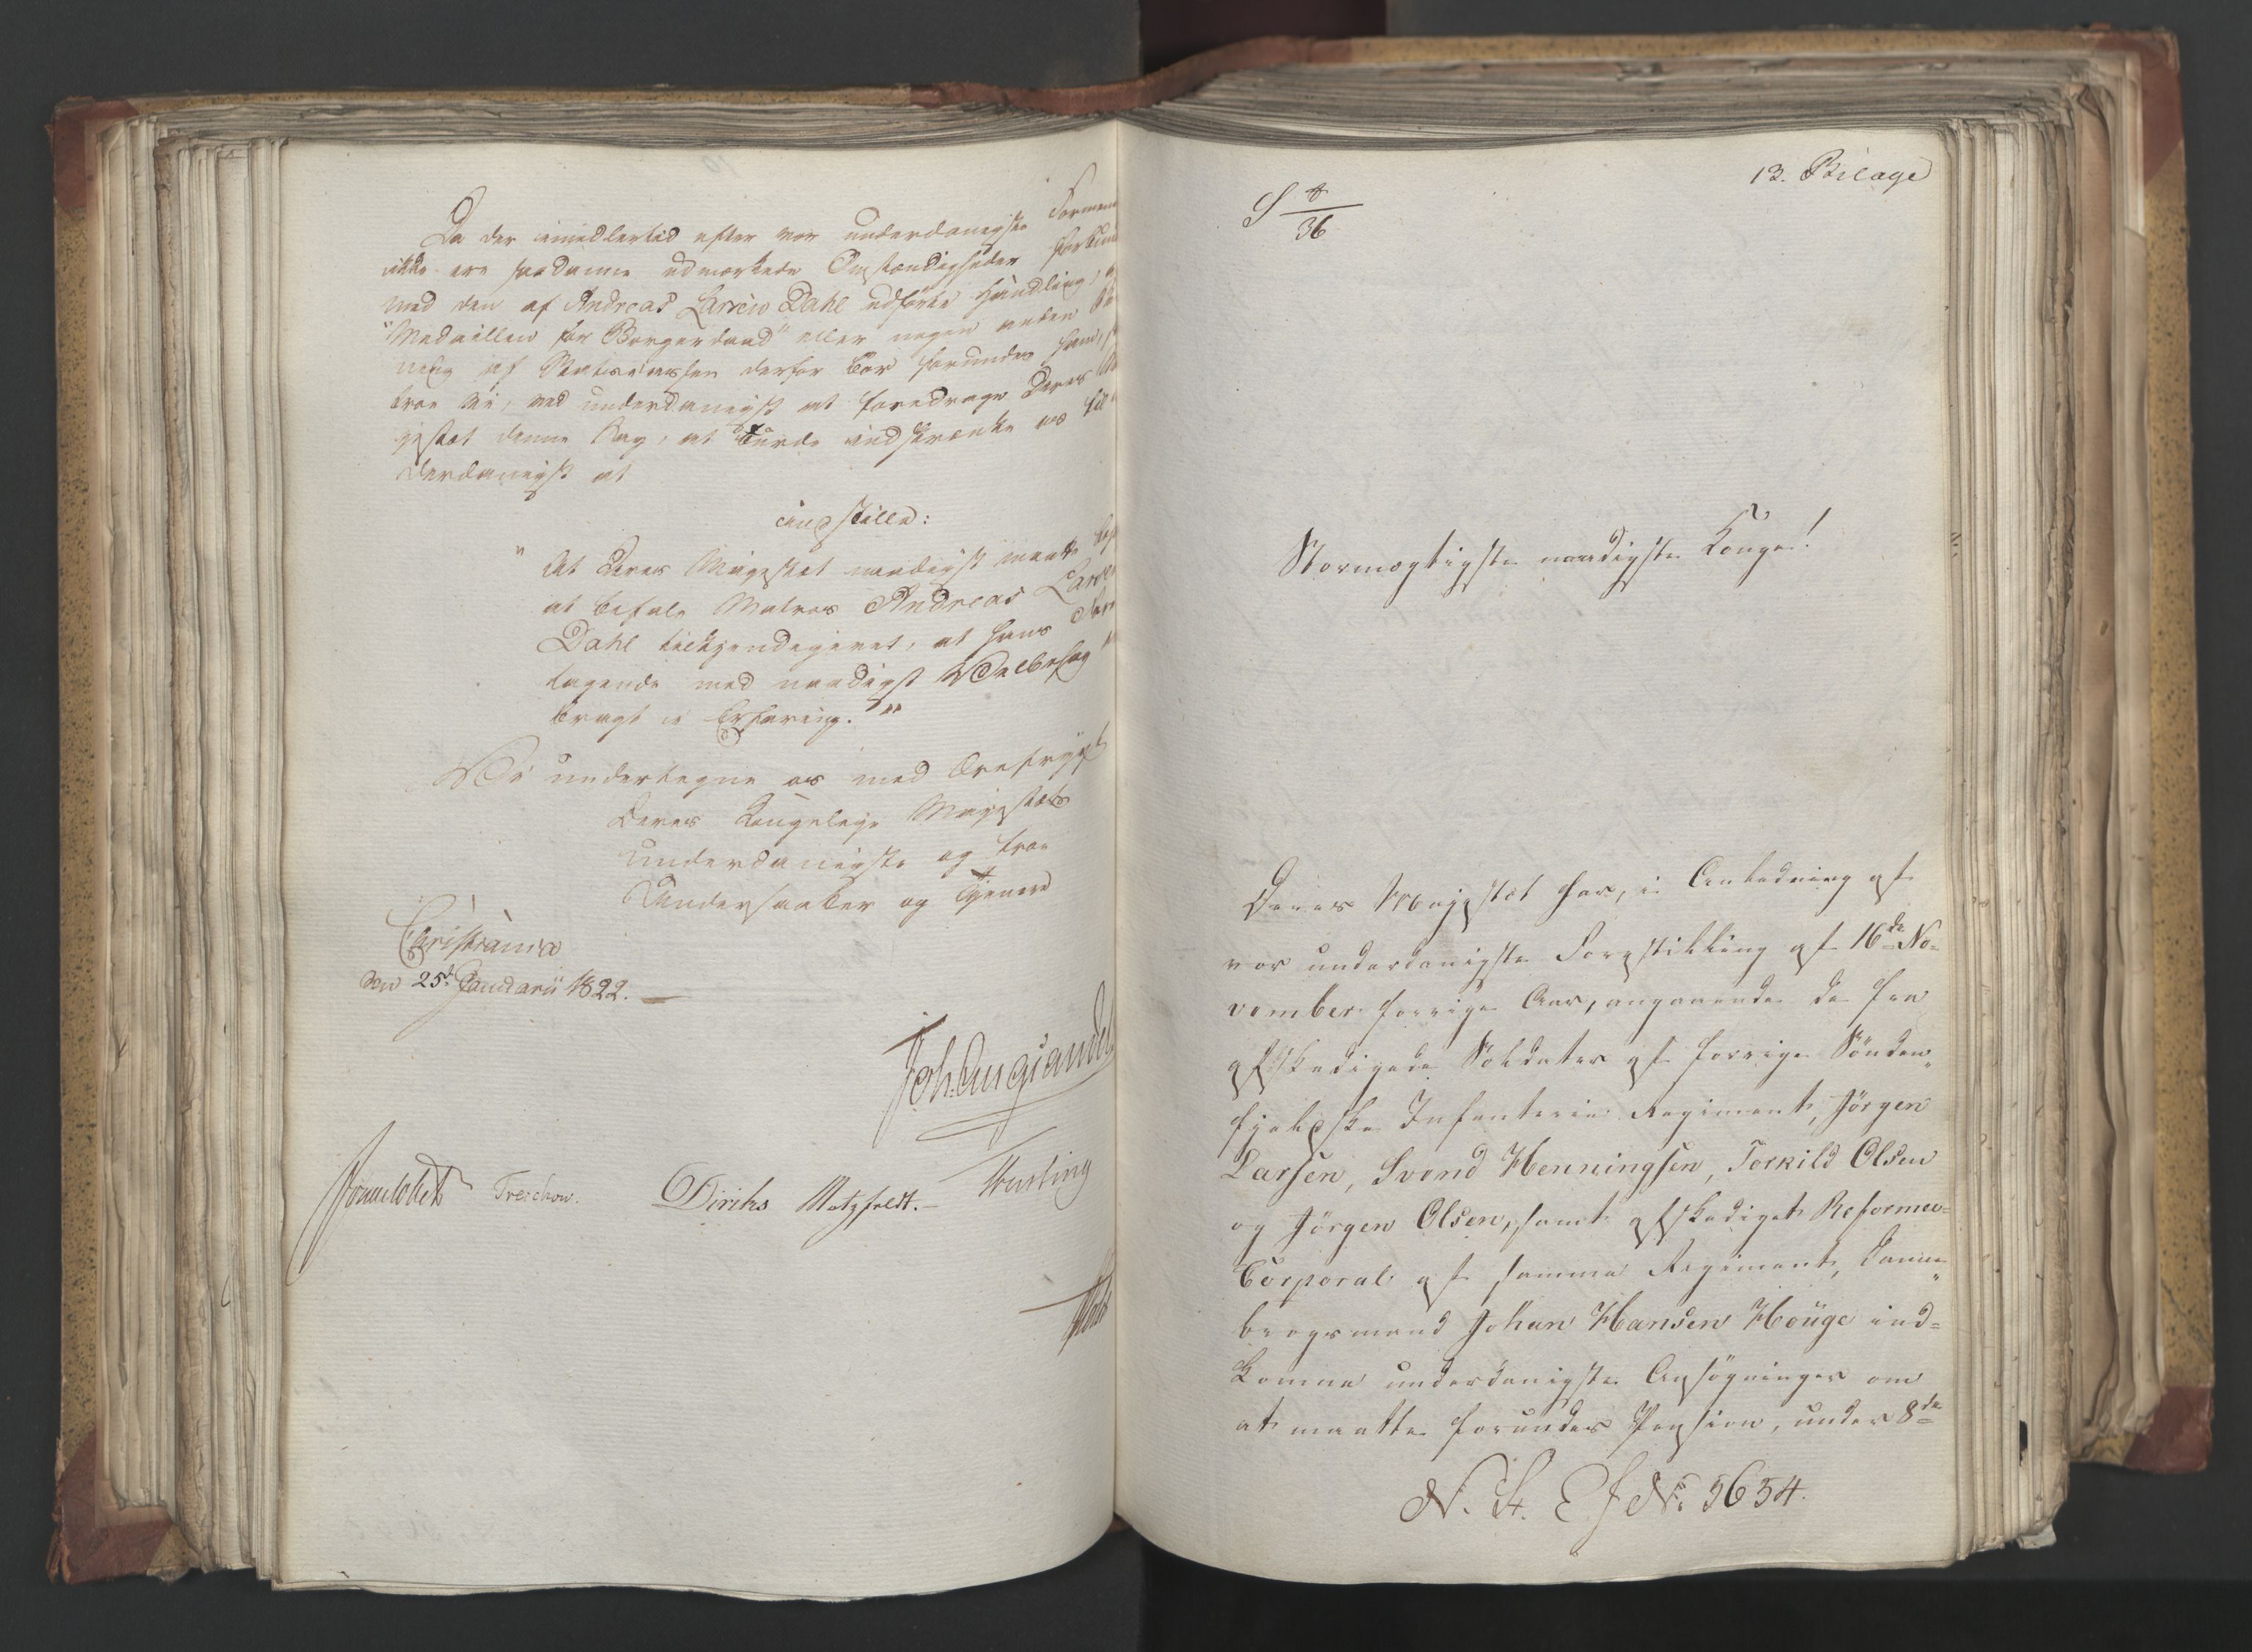 Da der imidlertid efter vor underdanigste Formeni
ikke ere saadanne udmærkede Omstændigheder forbun
med den af Andreas Larsen Dahl udførte Handling, a
"Medaillen for Borgerdaad" eller nogen anden
ning af Statscassen derfor bør forundes ham,
troe Vi, ved underdanigst at foredrage Deres Ma
jestæt denne Sag, at burde indskrænke os til
derdanigst at
indstille:
"At Deres Majestæt naadigst maatte
at befale Matros Andreas Larsen
Dahl tilkjendegivet, at hans
tagende med naadigst Velbehag
bragt i Erfaring."
Vi undertegne os med Ærefrygt
Deres Kongelige Majestæts
underdanigste og troe
Undersaatter og Tjenere
Christiania
den 25d Januarii 1822.
Joh. Aug. Sandels
Sommerhielm Treschow. Diriks Motzfeldt. Fasting
Holst
13. Bilage
S 8/36
Stormægtigste naadigste Konge!
Deres Majestæt har, i Anledning af
vor underdanigste Forestilling af 16de No=
vember forrige Aar, angaaende de fra
afskedigede Soldater af forrige Sönden„
fjeldske Infanterie Regiment, Jörgen
Larsen, Svend Henningsen, Torkild Olsen
og Jörgen Olsen, samt afskediget Reforme=
Corporal af samme Regiment, Danne„
brogsmand Johan Hansen Houge ind=
komne underdanigste Ansøgninger om
at maatte forundes Pension, under 8de
N. St. E f No. 5654.